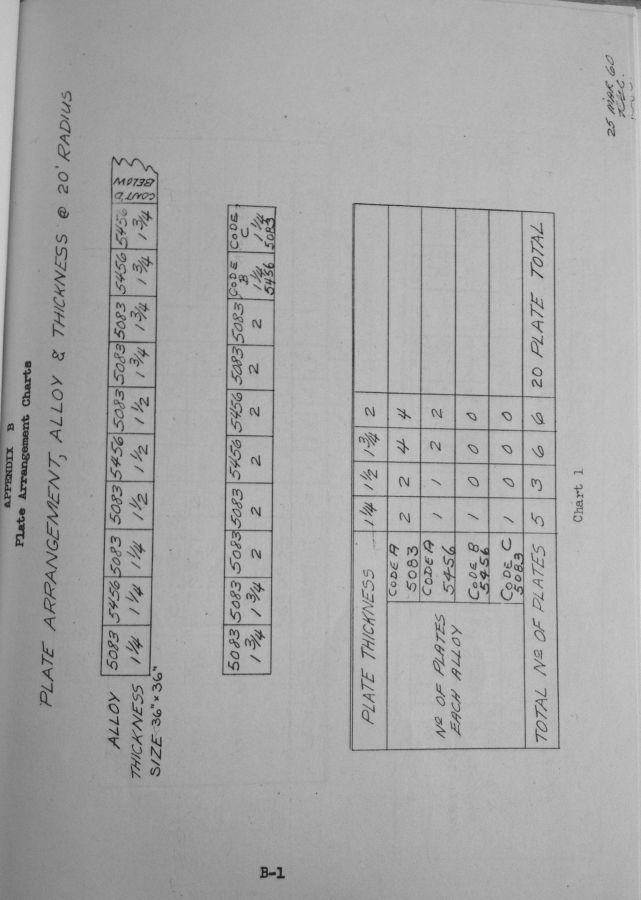 APPENDIX B
Plate Arrangement Charts
PLATE ARRANGEMENT, ALLOY & THICKNESS @ 20' RADIUS
ALLOY 5083 5456 5083 5083 5456 5083 5083 5083 5456 5456 CONT'D BELOW
THICKNESS 1¼ 1¼ 1¼ 1½ 1½ 1½ 1¾ 1¾ 1¾ 1¾
SIZE 36" x 36"
5083 5083 5083 5083 5456 5456 5083 5083 CODE B CODE C
1¾ 1¾ 2 2 2 2 2 2 1¼ 1¼
5456 5083
PLATE THICKNESS 1¼ 1½ 1¾ 2
Nº OF PLATES EACH ALLOY
CODE A 5083 2 2 4 4
CODE A 5456 1 1 2 2
CODE B 5456 1 0 0 0
CODE C 5083 1 0 0 0
TOTAL Nº OF PLATES 5 3 6 6 20 PLATE TOTAL
Chart 1
25 MAR 60
B-1